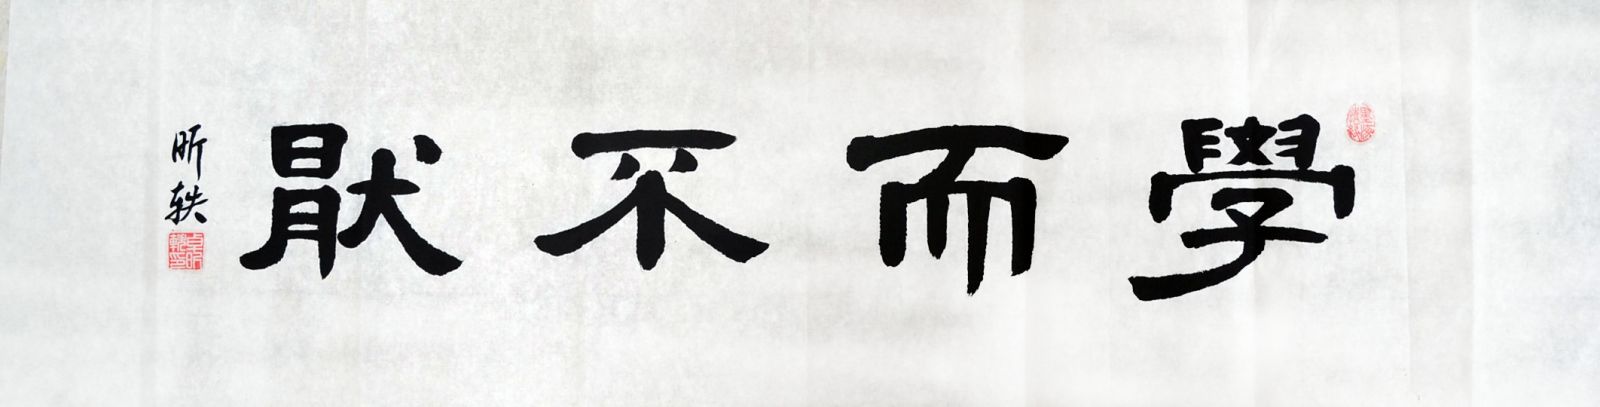 學而不猒
昕轶